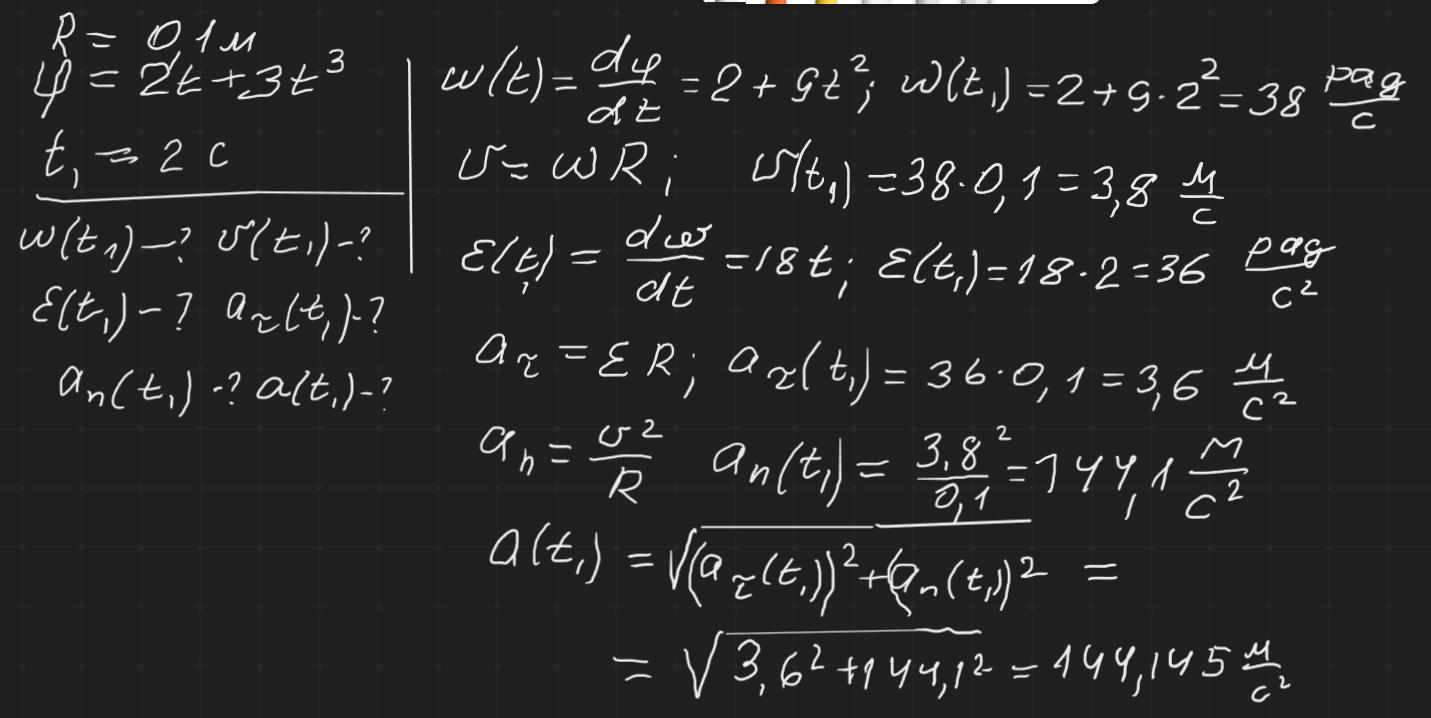 R = 0,1 м
φ = 2t + 3t³
t₁ = 2 с
ω(t₁) – ? υ(t₁) - ?
ε(t₁) - ? a_τ(t₁) - ?
aₙ(t₁) - ? a(t₁) - ?
ω(t) = dφ/dt = 2 + 9t²; ω(t₁) = 2 + 9·2² = 38 рад/с
υ = ωR; υ(t₁) = 38·0,1 = 3,8 м/с
ε(t) = dω/dt = 18t; ε(t₁) = 18·2 = 36 рад/с²
a_τ = εR; a_τ(t₁) = 36·0,1 = 3,6 м/с²
aₙ = υ²/R aₙ(t₁) = 3,8²/0,1 = 144,1 м/с²
a(t₁) = √((a_τ(t₁))² + (aₙ(t₁))²) =
= √(3,6² + 144,1²) = 144,145 м/с²